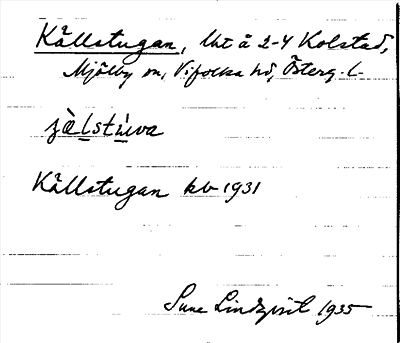 Källstugan, lht å 2-4 Kolstad,
Mjölby sn, Vifolka hd, Österg. l.
Källstugan kb 1931
Sune Lindqvist 1935